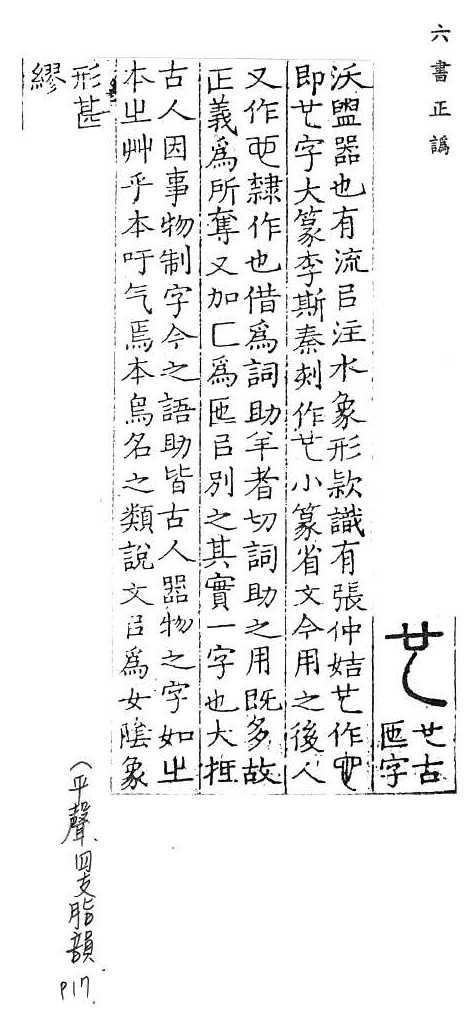 六書正譌
𠃟
𠃟古
匜字
沃盥器也有流㠯注水象形款識有張仲姞𠃟作
即𠃟字大篆李斯秦刻作𠃟小篆省文今用之後人
又作𠃟隸作也借爲詞助羊者切詞助之用既多故
正義爲所奪又加匚爲匜㠯別之其實一字也大抵
古人因事物制字今之語助皆古人器物之字如㞢
本㞢艸乎本吁气焉本鳥名之類說文㠯爲女陰象
形甚
繆
(平聲四支脂韻
P17.